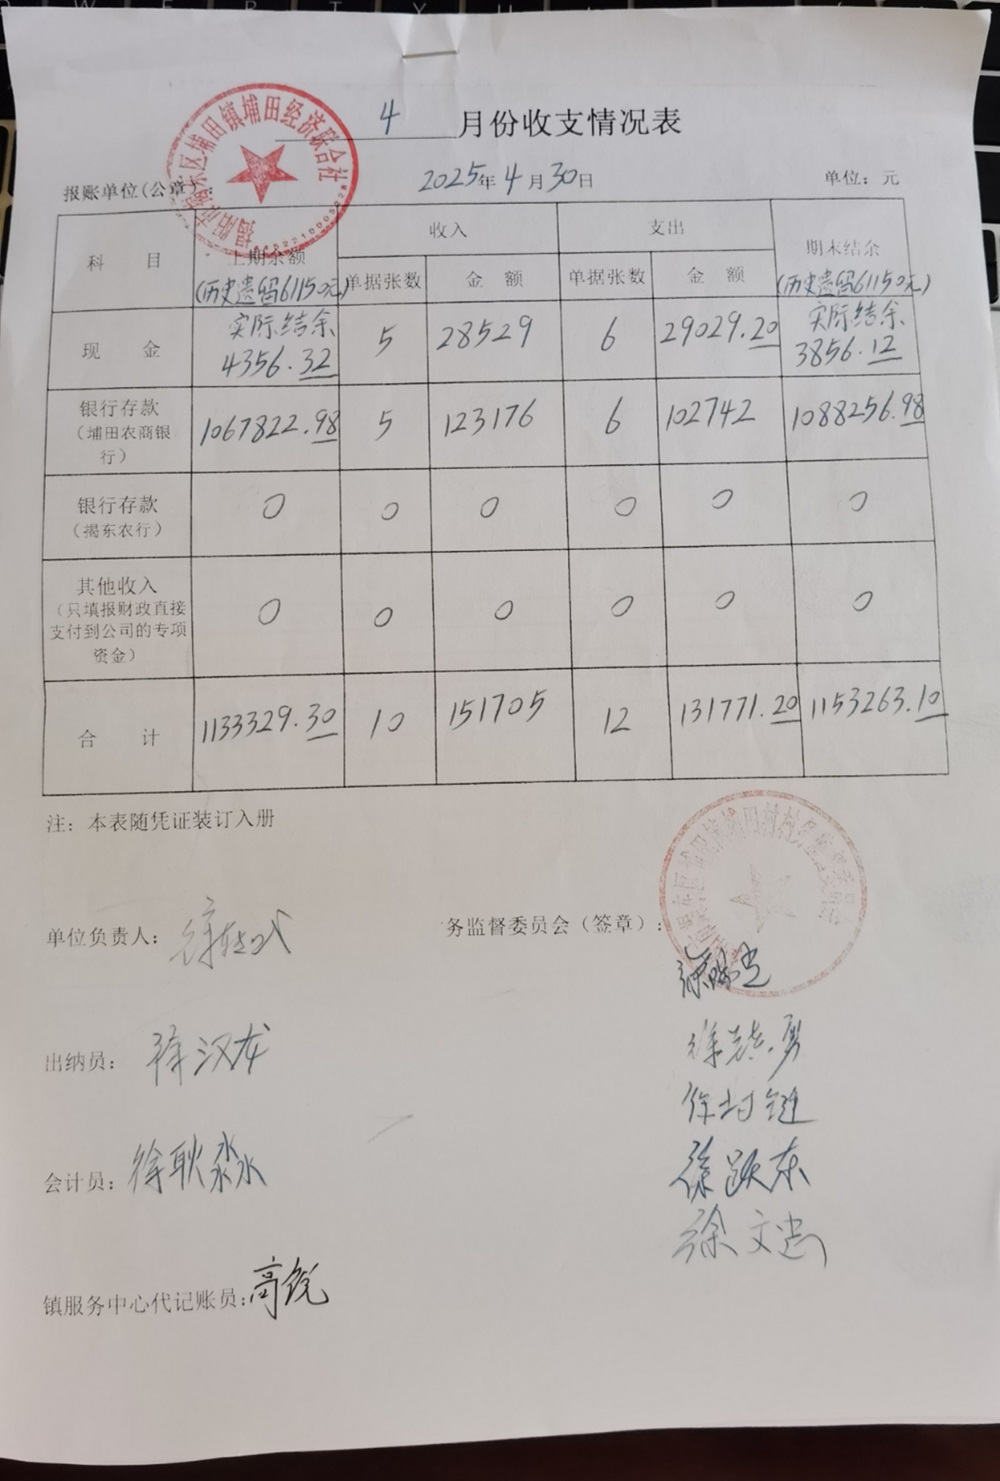 4 月份收支情况表
报账单位(公章): 2025年 4 月 30日 单位：元
埔田镇埔田经济联合社
科 目 上期余额 收入 支出 期末结余
(历史遗留61150元) 单据张数 金 额 单据张数 金 额 (历史遗留61150元)
现 金 实际结余 4356.32 5 28529 6 29029.20 实际结余 3856.12
银行存款 1067822.98 5 123176 6 102742 1088256.98
（埔田农商银
行）
银行存款 0 0 0 0 0 0
（揭东农行）
其他收入 0 0 0 0 0 0
（只填报财政直接
支付到公司的专项
资金）
合 计 1133329.30 10 151705 12 131771.20 1153263.10
注：本表随凭证装订入册
单位负责人：
务监督委员会（签章）：
出纳员： 徐汉龙
会计员： 徐耿淼
徐跃东
徐文忠
镇服务中心代记账员: 高锐